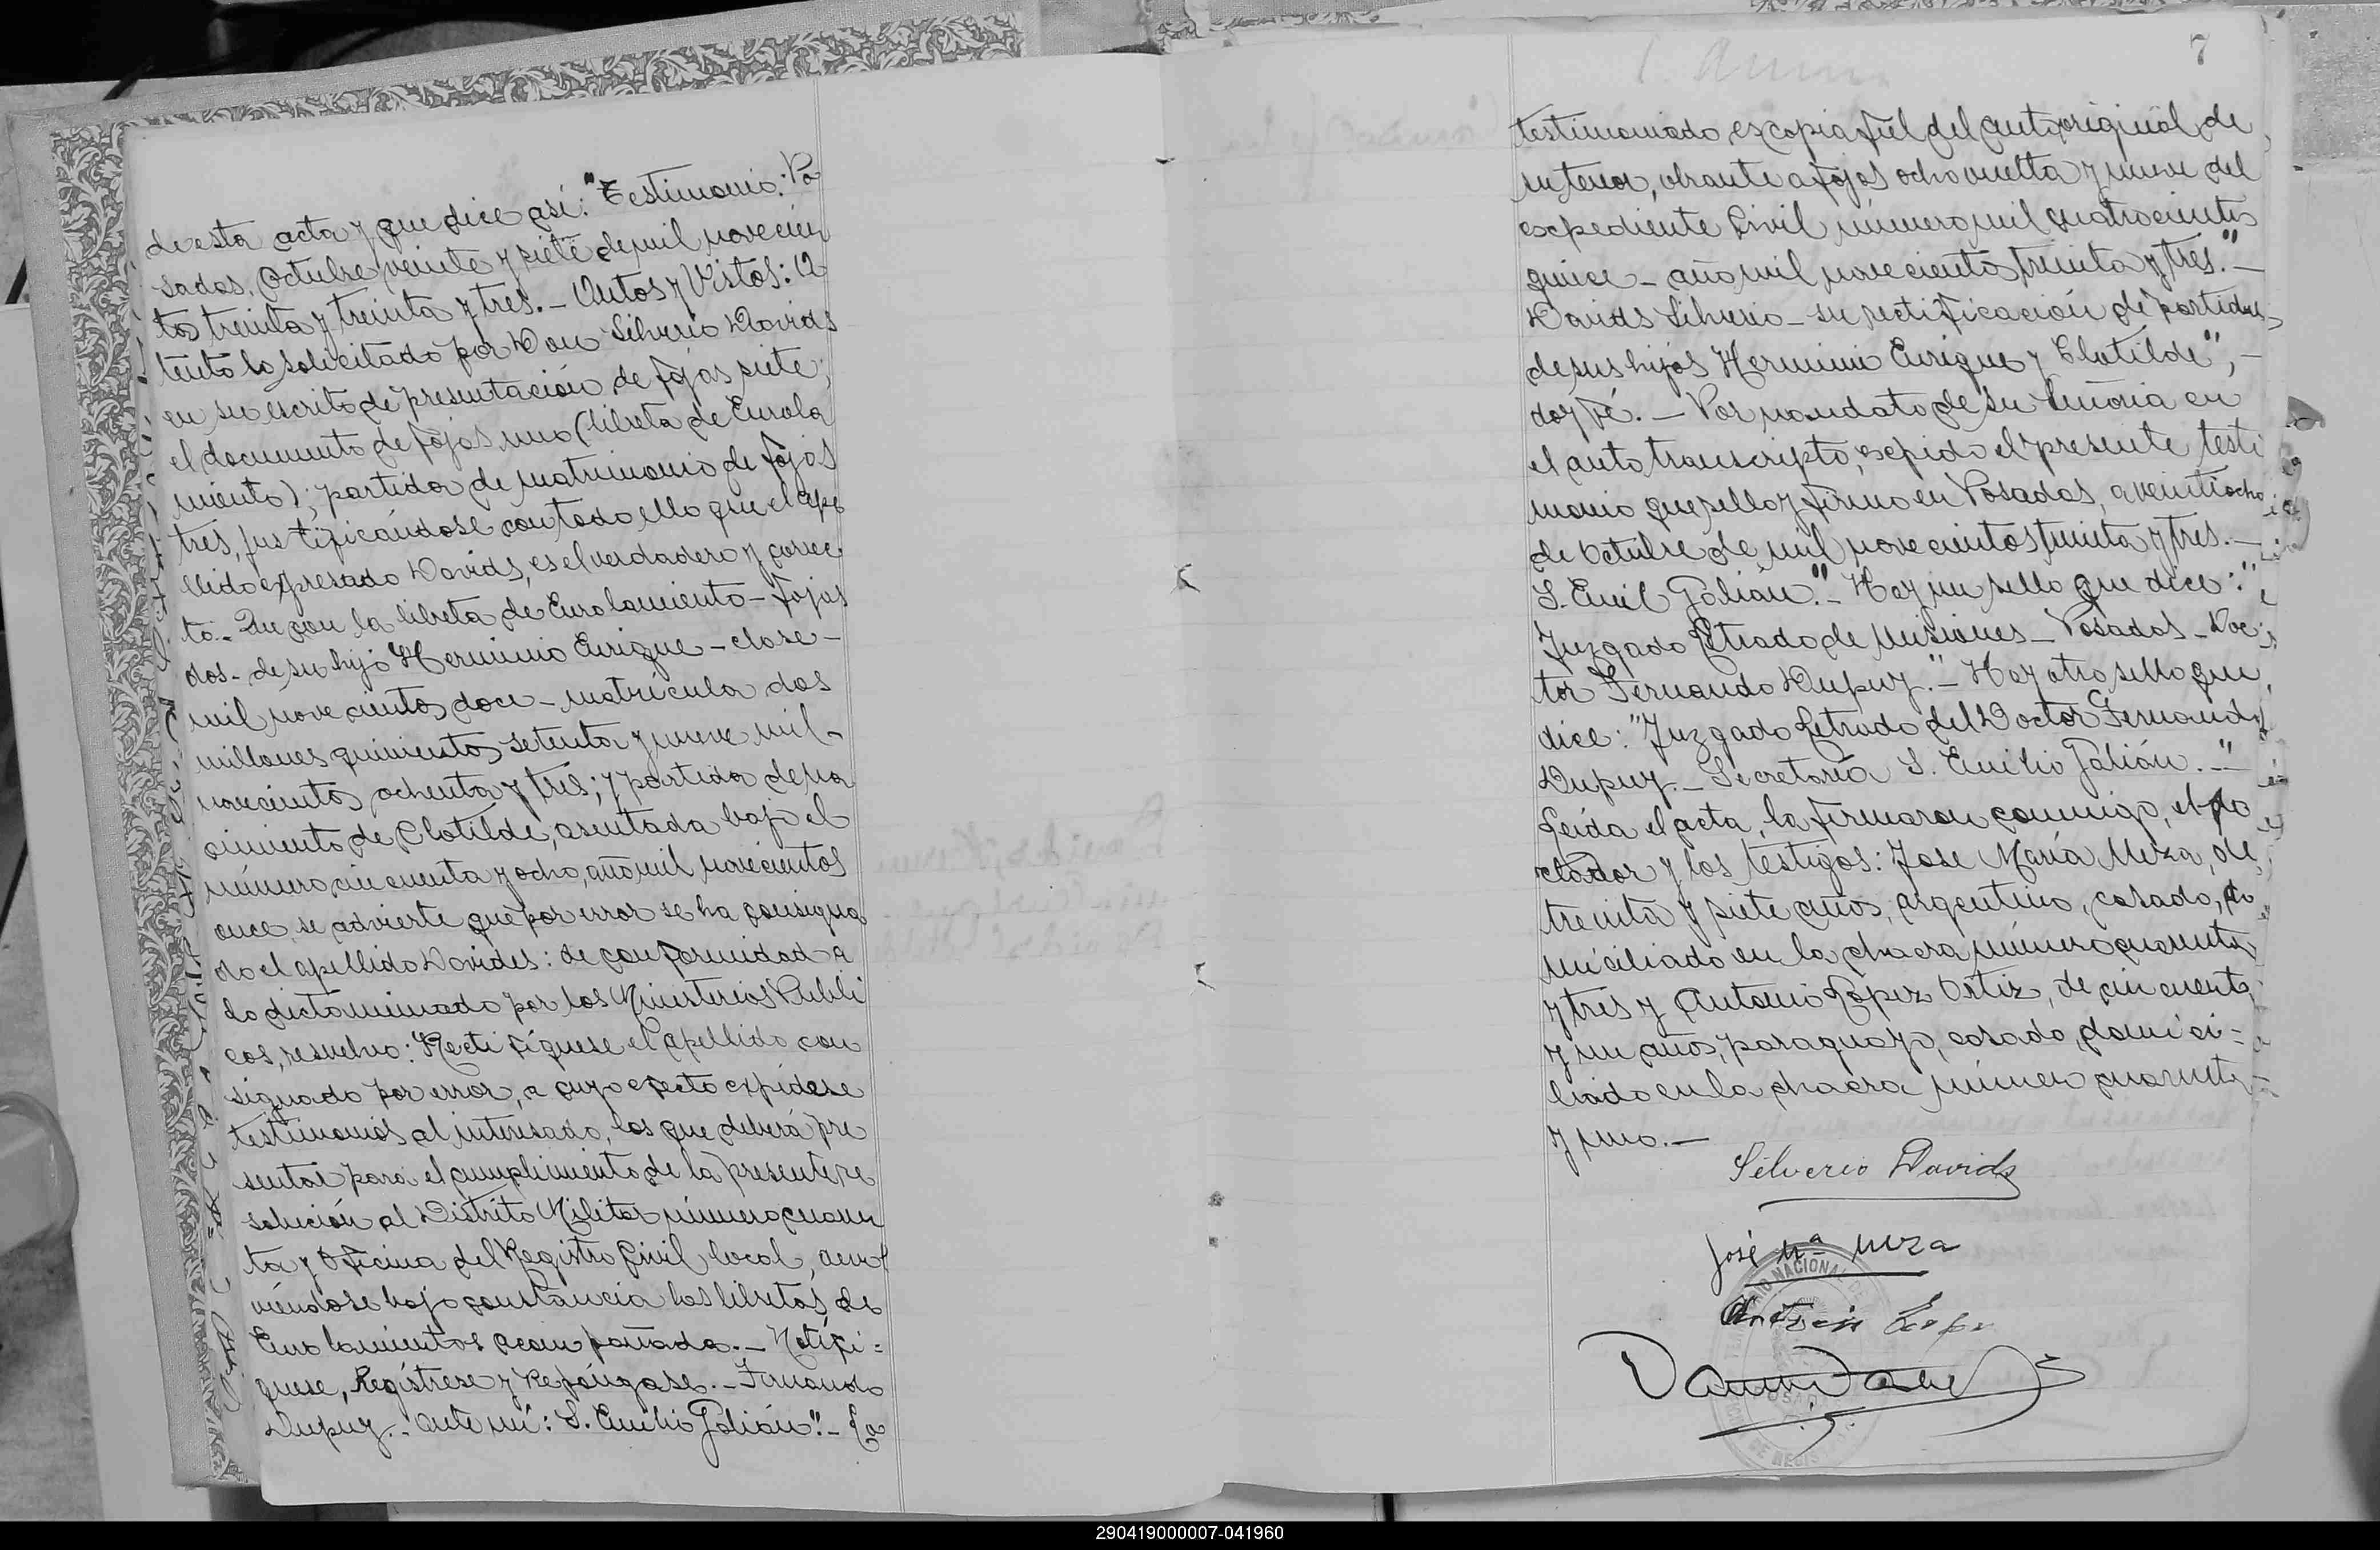 de esta acta y que dice así: "Testimonio: Po
sadas, Octubre veinte y siete de mil novecien
tos treinta y treinta y tres.- Autos y Vistos: A
tento lo solicitado por Don Silverio Davids
en su escrito de presentación de fojas siete;
el documento de fojas uno (libreta de Enrola
miento); partida de matrimonio de fojas
tres, justificándose con todo ello que el ape
llido expresado Davids, es el verdadero y correc
to.- Que con la libreta de Enrolamiento - fojas
dos - de su hijo Herminio Enrique - clase -
mil novecientos doce - matrícula dos
millones quinientos setenta y nueve mil -
novecientos ochenta y tres; y partida de na
cimiento de Clotilde, asentada bajo el
número cincuenta y ocho, año mil novecientos
once, se advierte que por error se ha consigna
do el apellido Davides: de conformidad a
lo dictaminado por los Ministerios Públi
cos, resuelvo: Rectifíquese el apellido con
signado por error, a cuyo efecto expídese
testimonios al interesado, los que deberá pre
sentar para el cumplimiento de la presente re
solución al Distrito Militar número cuaren
ta y Oficina del Registro Civil local, devol
viéndose bajo constancia las libretas de
Enrolamientos acompañada.- Notifí=
quese, Regístrese y Repóngase.- Fernando
Dupuy.- ante mí: S. Emilio Galián".- Lo
7
testimoniado, es copia fiel del auto original de
su tenor, obrante a fojas ocho vuelta y nueve del
expediente Civil número mil cuatrocientos
quince - año mil novecientos treinta y tres."-
Davids Silverio - su rectificación de partidas
de sus hijos Herminio Enrique y Clotilde", -
doy fé.- Por mandato de su Señoría en
el auto transcripto, expido el presente testi
monio que sello y firmo en Posadas, a veintiocho
de Octubre de mil novecientos treinta y tres.-
S. Emil Galián".- Hay un sello que dice: "
Juzgado Letrado de Misiones - Posadas - Doc
tor Fernando Dupuy."- Hay otro sello que
dice: "Juzgado Letrado del Doctor Fernando
Dupuy.- Secretaría S. Emilio Galián.-"-
Leída el acta, la firmaron conmigo, el de
clarador y los testigos: Jose María Meza, de
treinta y siete años, argentino, casado, do
miciliado en la chacra número cuarenta
y tres y Antonio López Ortiz, de cincuenta
y un años, paraguayo, casado, domici=
liado en la chacra número cuarenta
y uno.-
Silverio Davids
José Mª Meza
NACIONAL DE
Antonio
290419000007-041960